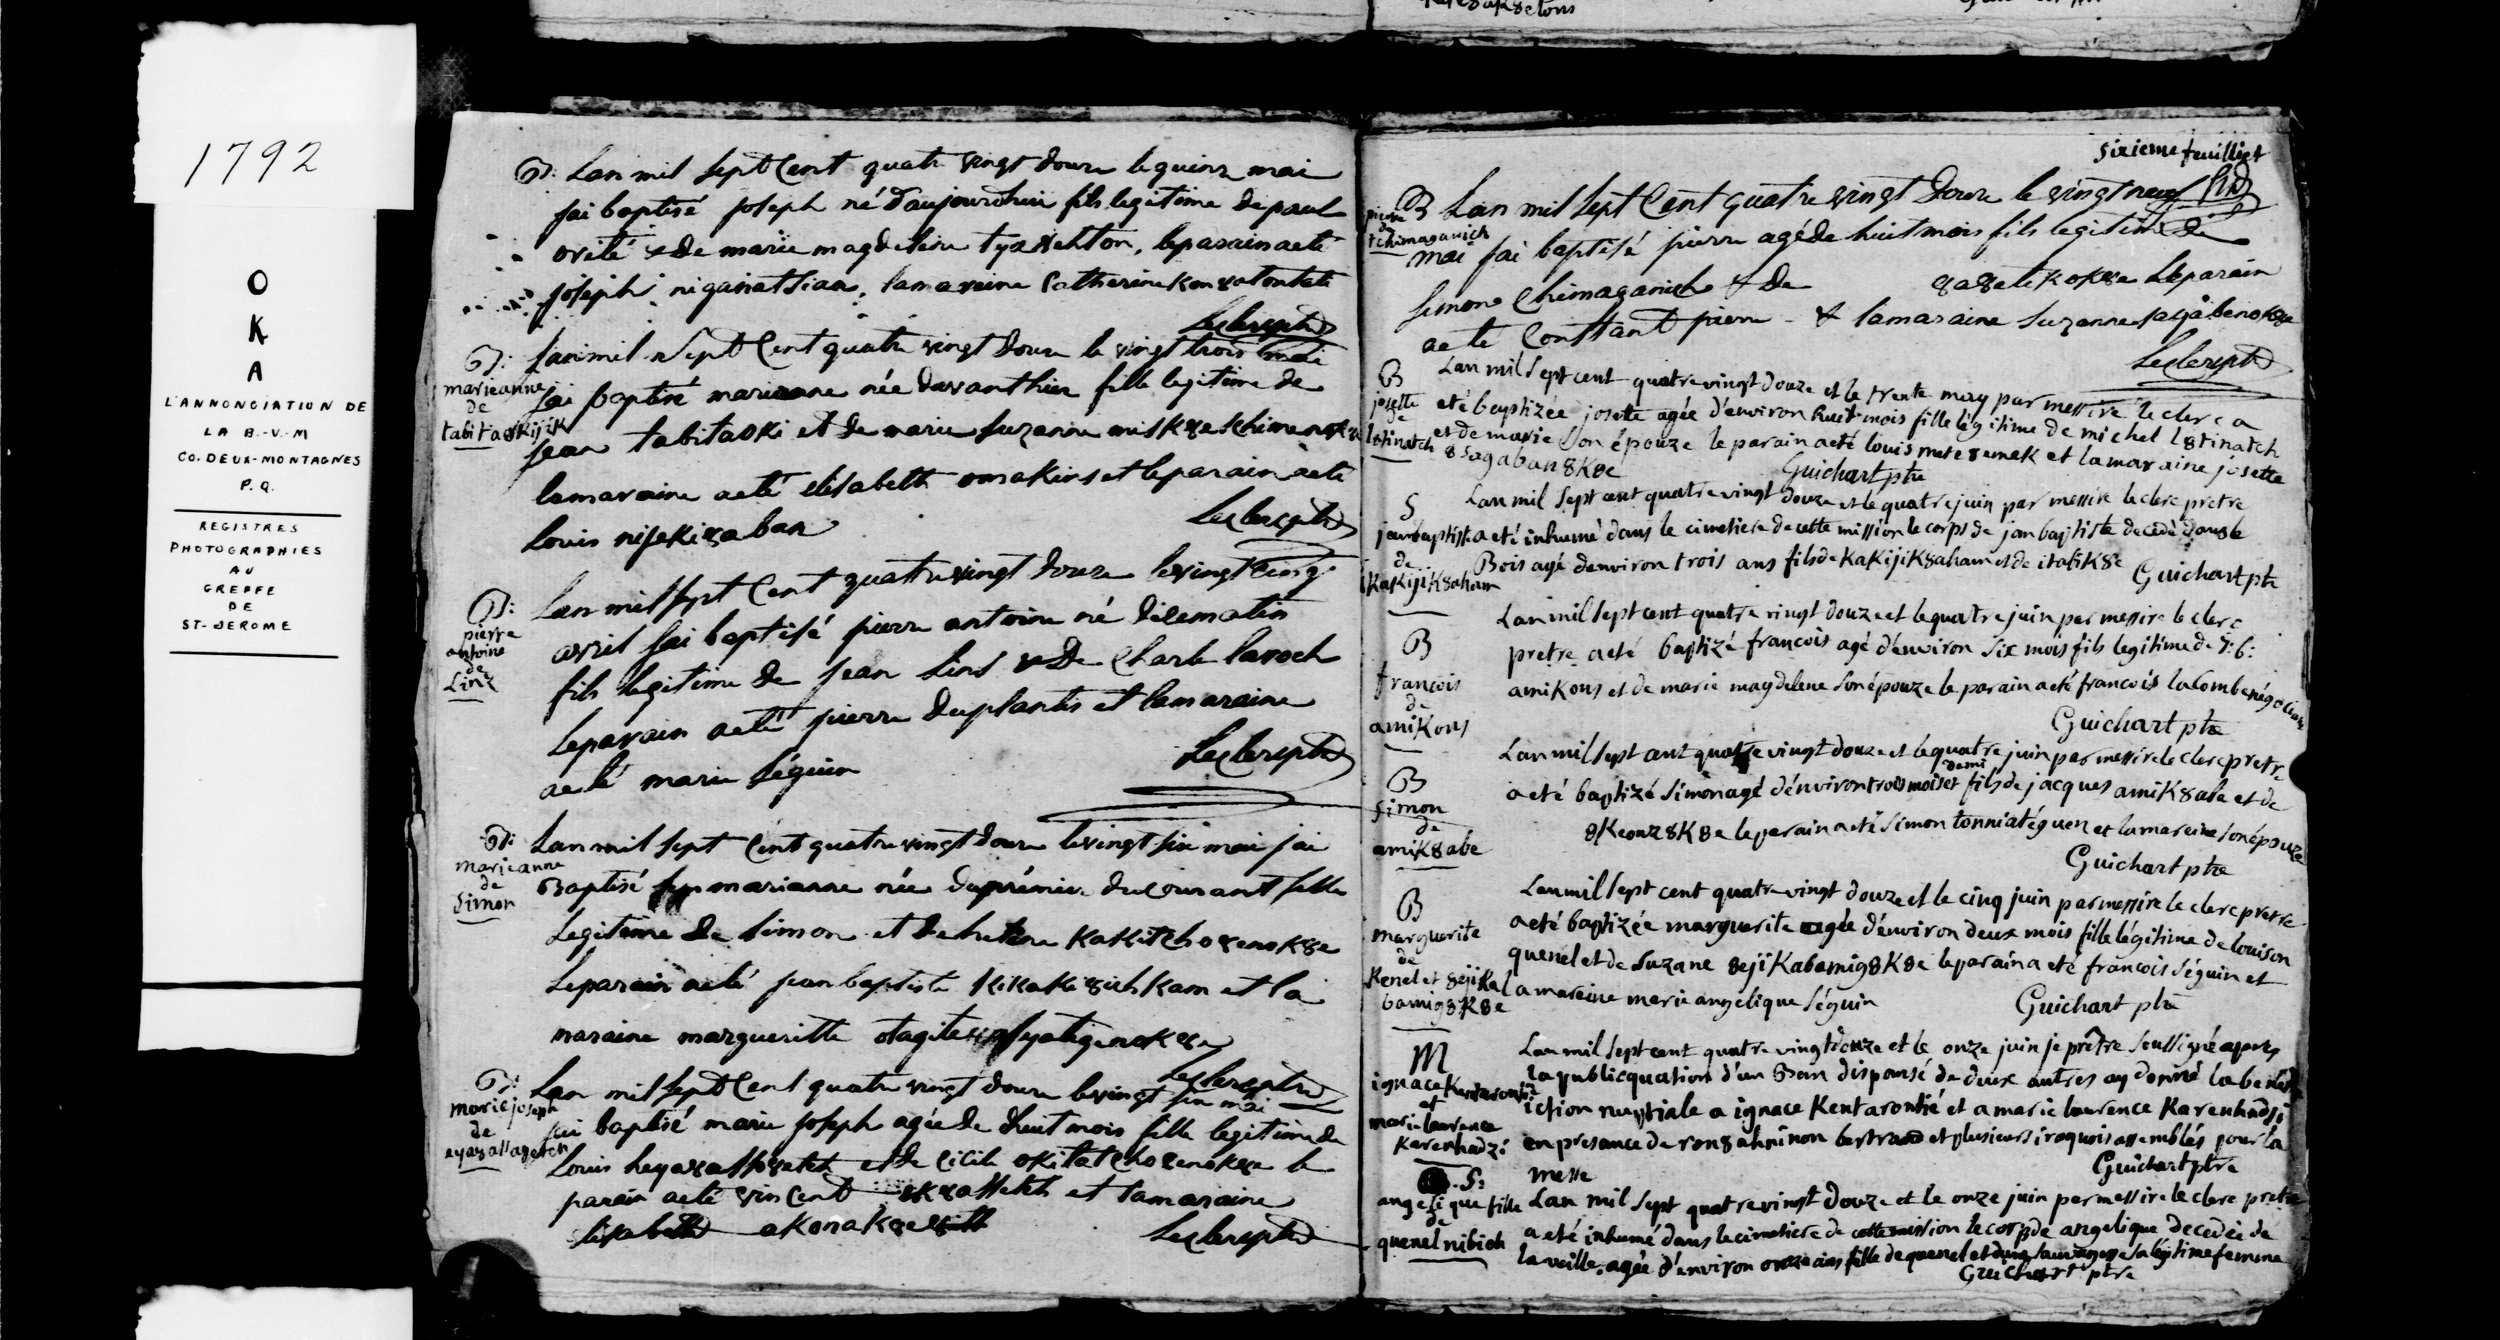 1792
O
K
A
L'ANNONCIATION DE
LA B.-V.-M
CO. DEUX-MONTAGNES
P.Q.
REGISTRES
PHOTOGRAPHIES
AU
GREFFE
DE
ST-JEROME
B: Lan mil sept Cent quatre vingt douze le quinze mai
jai baptisé joseph né d'aujourdhui fils legitime de paul
orité & de marie magdeleine tyaxehton, le parain a eté
joseph niganatsiaa, la maraine Catherine konxatontati
Leclerc ptre
B:
marieanne
de
tabita8kijik
Lan mil sept Cent quatre vingt douze le vingt trois mai
jai baptisé marianne née davanthier fille legitime de
jean tabitaoki et de marie suzanne
la maraine a eté elisabeth omakins et le parain a eté
louis nijekixaban
Leclerc ptre
B:
pierre
antoine
de
Linz
Lan mil sept Cent quatre vingt douze le vingt cinq
avril jai baptisé pierre antoine né dicematin
fils legitime de jean Lins & de Charle laroch
le parain a eté pierre duplantis et la maraine
a eté marie séguin
Leclerc ptre
B:
marieanne
de
Simon
Lan mil sept Cent quatre vingt douze le vingt six mai jai
Baptisé marianne née du prémier du courant fille
legitime de simon et de helene kakitchoxenokxe
le parain a eté jean baptiste kikakixichkam et la
maraine margueritte
Leclerc ptre
B:
marie joseph
de
Lan mil sept Cent quatre vingt douze le vingt six mai
jai baptisé marie joseph agée de huit mois fille legitime de
Louis et de Cicile okitatchoxenokxe le
parain a eté vincent et la maraine
lisabeth
Leclerc ptre
Sixieme feuillet
B
pierre
de
tchimaganich
Lan mil sept Cent quatre vingt douze le vingt neuf
mai jai baptisé pierre agé de huit mois fils legitime de
simone Chimaganich & de xaxatekokxe Le parain
a eté Constant pierre & la maraine suzanne
Leclerc ptre
B
josette
de
l8tinatch
Lan mil sept cent quatre vingt douze et le trente may par messire le clerc a
eté baptizée josette agée d'environ huit mois fille légitime de michel l8tinatch
et de marie son épouze le parain a eté louis mete8emek et la maraine josette
8sagaban8k8e
Guichart ptre
S
jean baptiste
de
Kakijik8aham
Lan mil sept cent quatre vingt douze et le quatre juin par messire le clerc pretre
a eté inhumé dans le cimetiere de cette mission le corps de jan baptiste decedé dans le
Bois agé denviron trois ans fils de Kakijik8aham et de itatik8e
Guichart ptre
B
françois
de
amikons
Lan mil sept cent quatre vingt douze et le quatre juin par messire le clerc
pretre a eté baptizé francois agé d'environ six mois fils legitime de J: b:
amikons et de marie magdelene son épouze le parain a eté francois lacombe négociant
Guichart ptre
B
Simon
de
amik8abe
Lan mil sept cent quatre vingt douze et le quatre juin par messire le clerc pretre
a eté baptizé Simon agé d'environ trois mois et demi fils de jacques amik8abe et de
8keouz8k8e le parain a eté Simon tonniatéguen et la mareine son épouze
Guichart ptre
B
marguerite
de
Kenel et 8ejika
bamig8k8e
Lan mil sept cent quatre vingt douze et le cinq juin par messire le clerc pretre
a eté baptizée marguerite agée d'énviron deux mois fille légitime de louison
quenel et de Suzane 8ejikabamig8k8e le parain a eté francois séguin et
la mareine marie angelique séguin
Guichart ptre
M
ignace Kentarontié
et
marie laurence
Karenhadzi
Lan mil sept cent quatre vingt douze et le onze juin je prêtre soussigné apres
la publicquation d'un Ban dispensé de deux autres ay donné la bened
iction nuptiale a ignace Kentarontié et a marie laurence Karenhadzi
en presance de ron8ahninon bertrand et plusieurs iroquois assemblés pour la
messe
Guichart ptre
S:
angelique fille
de
quenel nibich
Lan mil sept quatre vingt douze et le onze juin par messire le clerc pretre
a eté inhumé dans le cimetiere de cette mission le corps de angelique decedée de
la veille, agée d'environ onze ans fille de quenel et d'une sauvagesse sa légitime femme
Guichart ptre